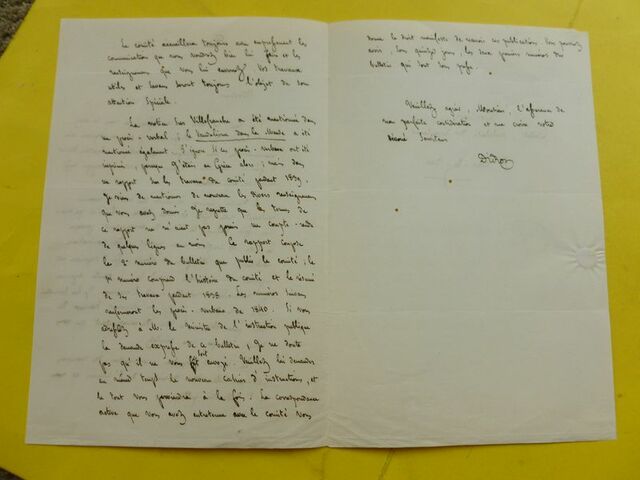 Le comité accueillera toujours avec empressement les
communications que vous voudrez bien lui faire et les
renseignemens que vous lui enverrez. Vos travaux
utiles et savans seront toujours l'objet de son
attention spéciale.
La notice sur Villefranche a été mentionnée dans
un procès-verbal ; le dans la a été
mentionné également. J'ignore si ces procès-verbaux ont été
imprimés, parceque j'étais en Grèce alors ; mais dans
un rapport sur les travaux du comité pendant 1839,
je viens de mentionner de nouveau les divers renseignemens
que vous avez donnés. Je regrette que les termes de
ce rapport ne m'aient pas permis un compte-rendu
de quelques lignes au moins. Ce rapport compose
le 2e numéro du bulletin que publie le comité ; le
1er numéro comprend l'histoire du comité et le résumé
de ses travaux pendant 1838. Les numéros suivans
renfermeront les procès-verbaux de 1840. Si vous
adressez à M. le ministre de l'instruction publique
la demande expresse de ce bulletin, je ne doute
pas qu'il ne vous soit envoyé. Veuillez lui demander
en même temps le nouveau cahier d'instructions, et
le tout vous parviendra à la fois. La correspondance
active que vous avez entretenue avec le comité vous
donne le droit manifeste de recevoir ces publications. Vous pourrez
avoir, sous quinze jours, les deux premiers numéros du
bulletin qui sont sous presse.
Veuillez agréer, Monsieur, l'assurance de
ma parfaite considération et me croire votre
dévoué serviteur
Didron